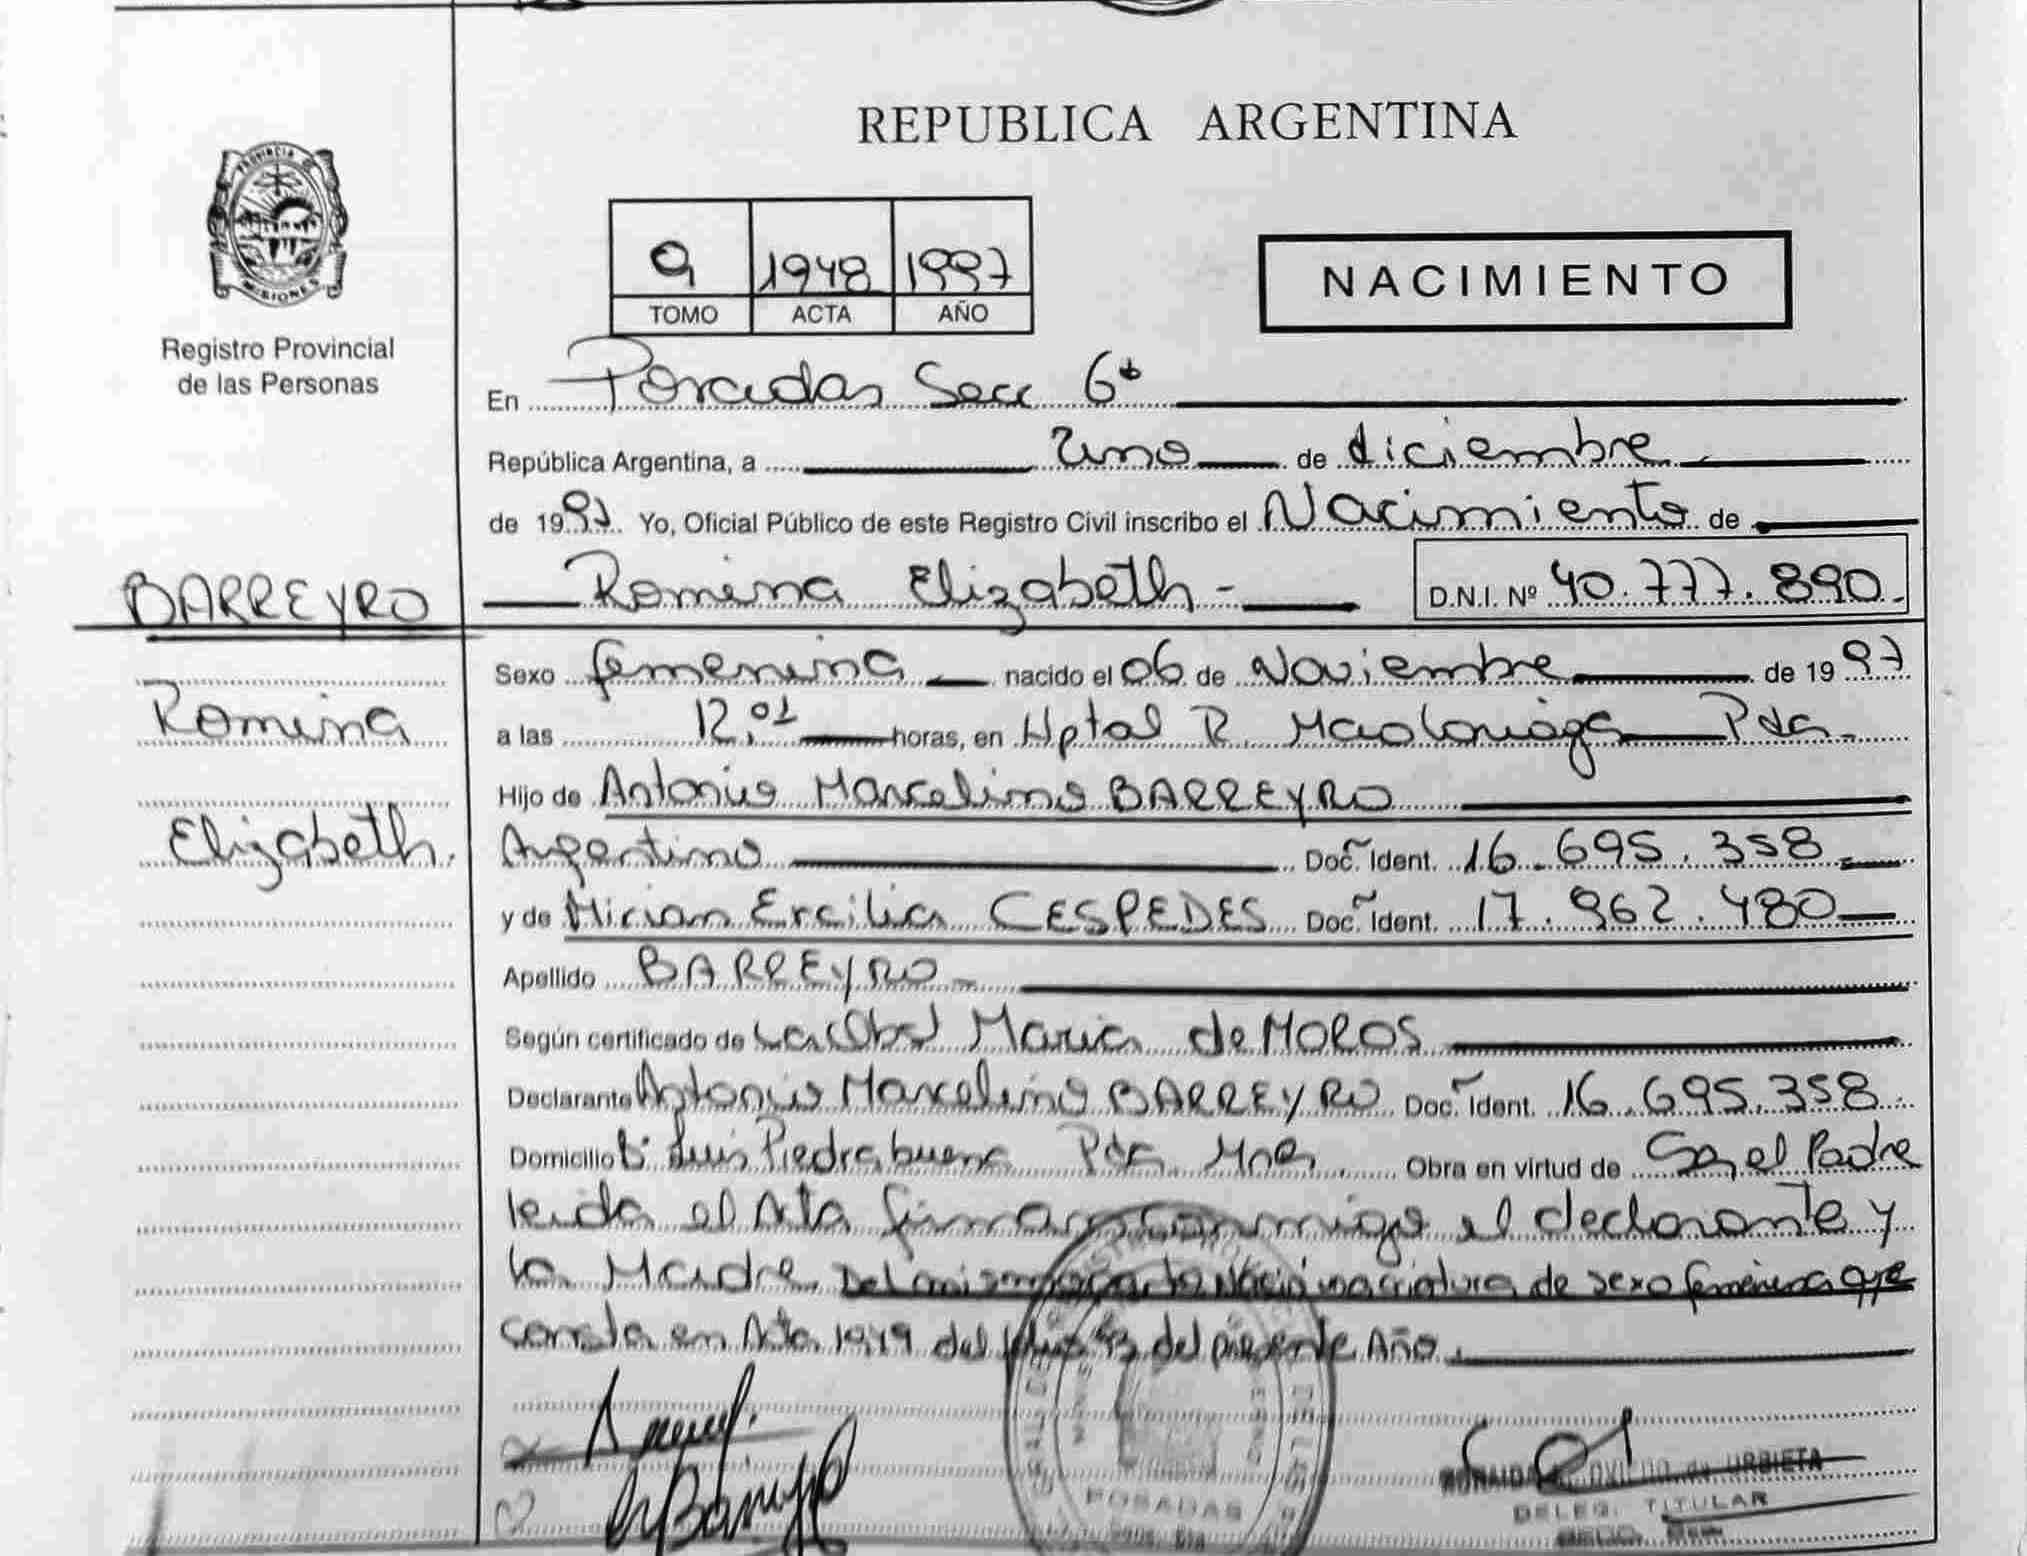 REPUBLICA ARGENTINA
PROVINCIA DE
MISIONES
Registro Provincial
de las Personas
9 1948 1997
TOMO ACTA AÑO
NACIMIENTO
En Posadas Secc 6ª
República Argentina, a Uno de diciembre
de 1997 Yo, Oficial Público de este Registro Civil inscribo el Nacimiento de
BARREYRO
Romina Elizabeth - D.N.I. Nº 40.777.890.-
Romina
Elizabeth.
Sexo femenina nacido el 06 de Noviembre de 1997
a las 12,01 horas, en Hptal R. Madariaga Pdas
Hijo de Antonio Marcelino BARREYRO
Argentino Doc. Ident. 16.695.358
y de Mirian Ercilia CESPEDES Doc. Ident. 17.962.480
Apellido BARREYRO
Según certificado de La Obst Maria de MOROS
Declarante Antonio Marcelino BARREYRO Doc. Ident. 16.695.358
Domicilio Bº Luis Piedrabuena Pdas Mnes. Obra en virtud de Ser el Padre
leida el Acta firman conmigo el declarante y
la Madre. Del mismo parto Nació una criatura de sexo femenina que
consta en Acta 1949 del del presente Año.
POSADAS
de URBIETA
DELEG. TITULAR